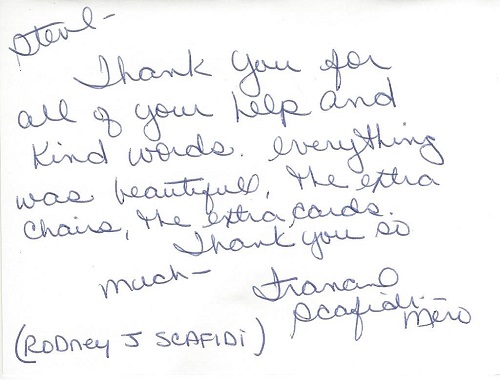 Steve -
Thank you for
all of your help and
kind words. everything
was beautiful, the extra
chairs, the extra cards.
Thank you so
much -
Scafidi -
Mero
(RODney J SCAFIDi)